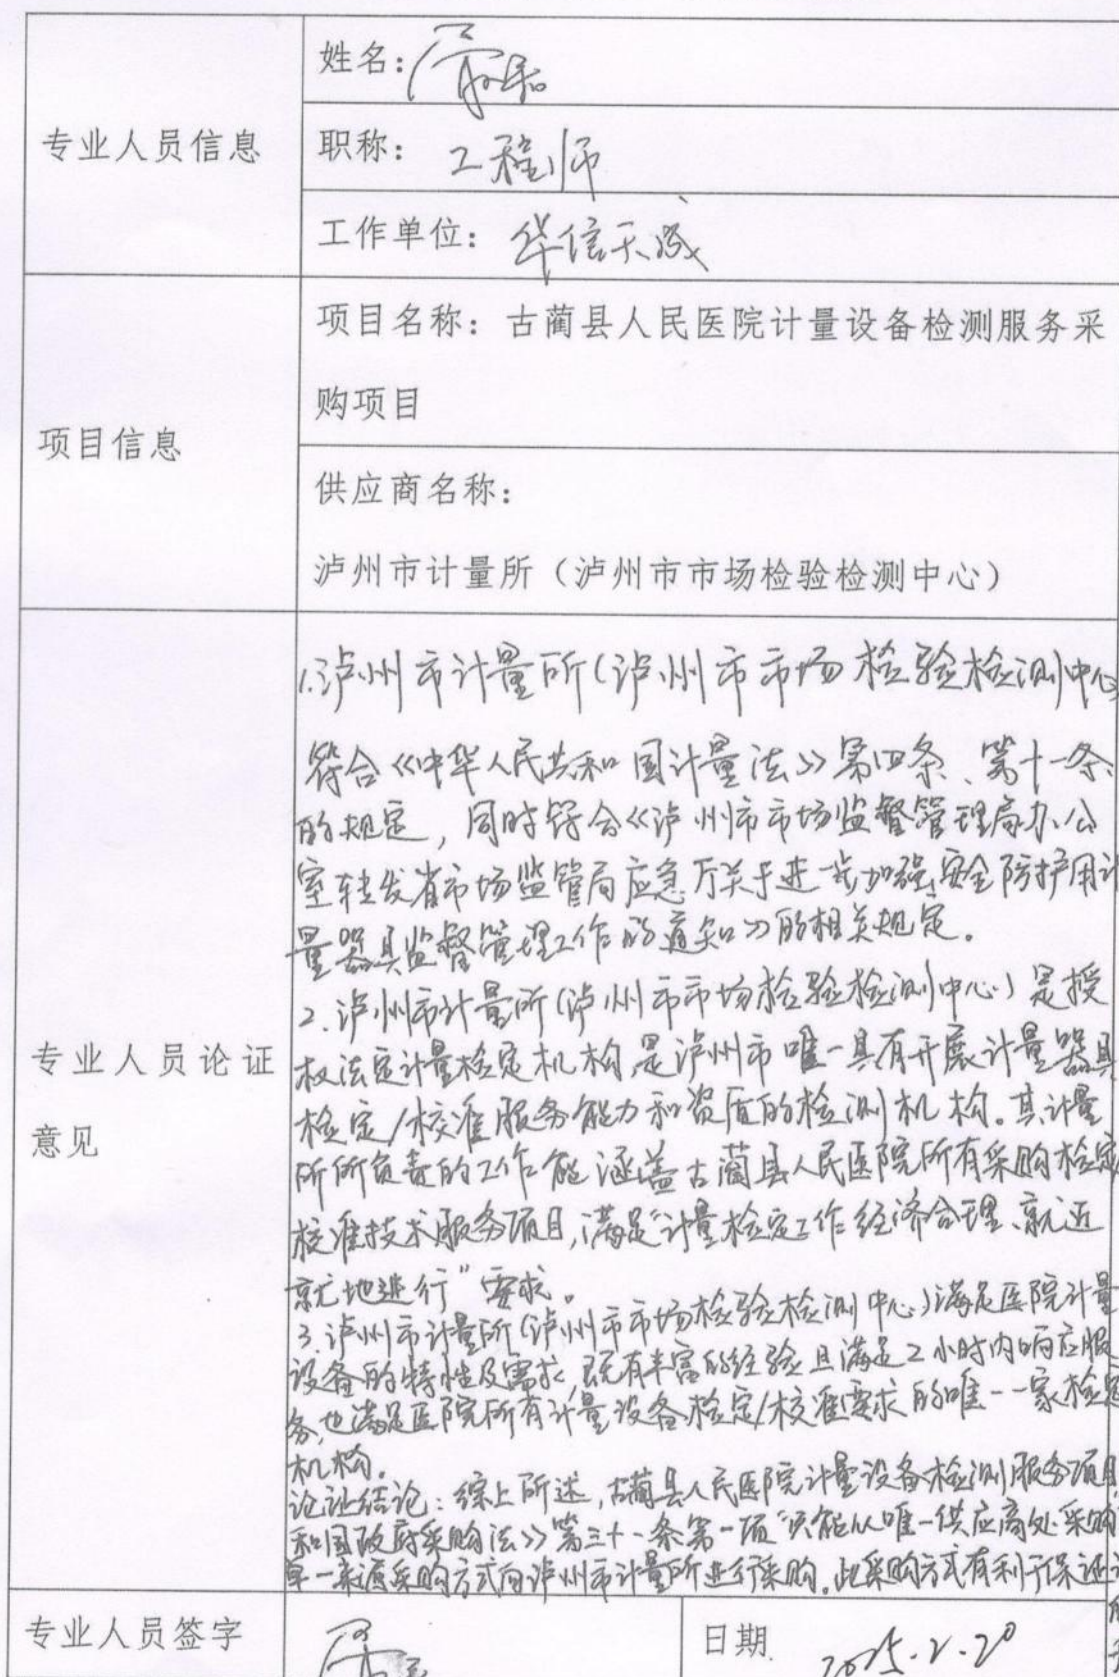 专业人员信息
姓名:
职称: 工程师
工作单位: 华信天成
项目信息
项目名称: 古蔺县人民医院计量设备检测服务采
购项目
供应商名称:
泸州市计量所（泸州市市场检验检测中心）
专业人员论证
意见
1.泸州市计量所(泸州市市场检验检测中心
符合《中华人民共和国计量法》第四条、第十一条
的规定，同时符合《泸州市市场监督管理局办公
室转发省市场监管局应急厅关于进一步加强安全防护用计
量器具监督管理工作的通知》的相关规定。
2.泸州市计量所(泸州市市场检验检测中心)是授
权法定计量检定机构,是泸州市唯一具有开展计量器具
检定/校准服务能力和资质的检测机构。其计量
所所负责的工作能涵盖古蔺县人民医院所有采购检定
校准技术服务项目,满足"计量检定工作经济合理、就近
就地进行"要求。
3.泸州市计量所(泸州市市场检验检测中心)满足医院计量
设备的特性及需求,既有丰富的经验且满足2小时内响应服
务,也满足医院所有计量设备检定/校准要求的唯一一家检定
机构。
论证结论:综上所述,古蔺县人民医院计量设备检测服务项目
和国政府采购法》第三十一条第一项"只能从唯一供应商处采购
单一来源采购方式向泸州市计量所进行采购。此采购方式有利于保证
专业人员签字
日期 2025.2.20